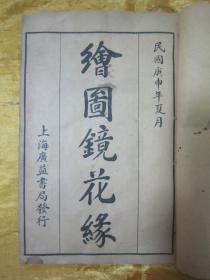 民國庚申年夏月
繪圖鏡花緣
上海廣益書局發行